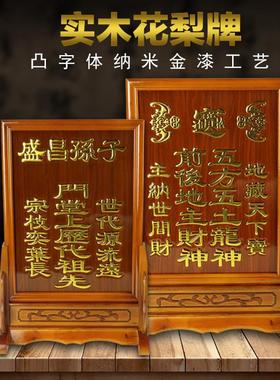 实木花梨牌
凸字体纳米金漆工艺
子孫昌盛
世代源流遠
門堂上歷代祖先
宗枝奕葉長
地藏天下寶
五方五土龍神
前後地主財神
主納世間財